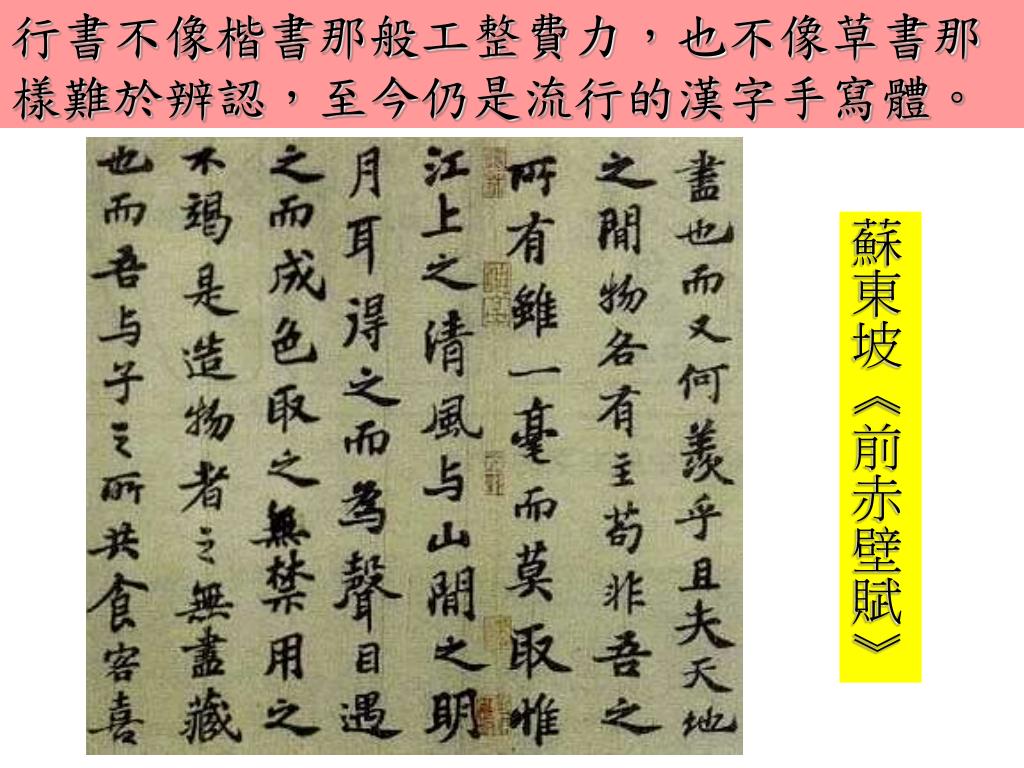 行書不像楷書那般工整費力，也不像草書那
樣難於辨認，至今仍是流行的漢字手寫體。
蘇東坡《前赤壁賦》
盡也而又何羨乎且夫天地
之間物各有主苟非吾之
所有雖一毫而莫取惟
江上之清風与山間之明
月耳得之而為聲目遇
之而成色取之無禁用之
不竭是造物者之無盡藏
也而吾与子之所共食客喜